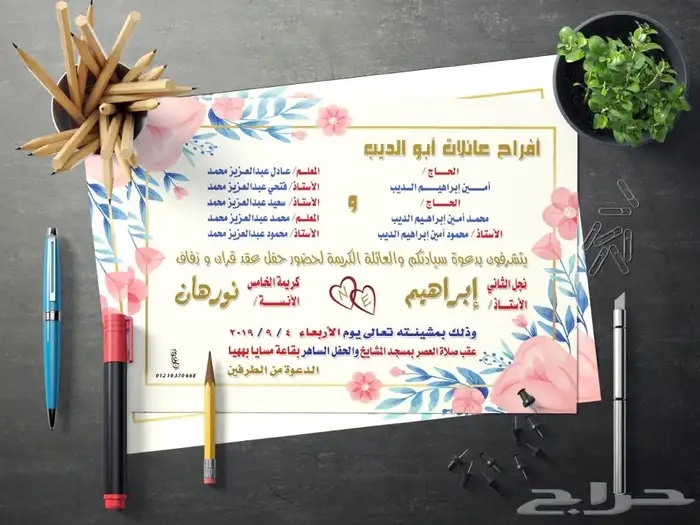 أفراح عائلات أبو الديب
الحـــاج /
أمـــين إبراهيـــم الديـــب
الحـــاج /
محمد أمـين إبراهيم الديب
الأستاذ / محمود أمين إبراهيم الديب
و
المعلــم / عـادل عبدالعزيز محمد
الأستاذ / فتحي عبدالعزيز محمد
الأستاذ / سعيد عبدالعزيز محمد
المعلم / محمد عبدالعزيز محمد
الأستاذ / محمود عبدالعزيز محمد
يتشرفون بدعوة سيادتكم والعائلة الكريمة لحضور حفل عقد قران و زفاف
نجل الثاني
الأستاذ /
إبراهيم
N E
كريمة الخامس
الآنسـة /
نورهان
وذلك بمشيئـته تعالى يوم الأربعاء ٤ / ٩ / ٢٠١٩
عقب صلاة العصر بمسجد المشايخ والحفل الساهر بقاعة مسايا ببهبيا
الدعوة من الطرفين
حراج